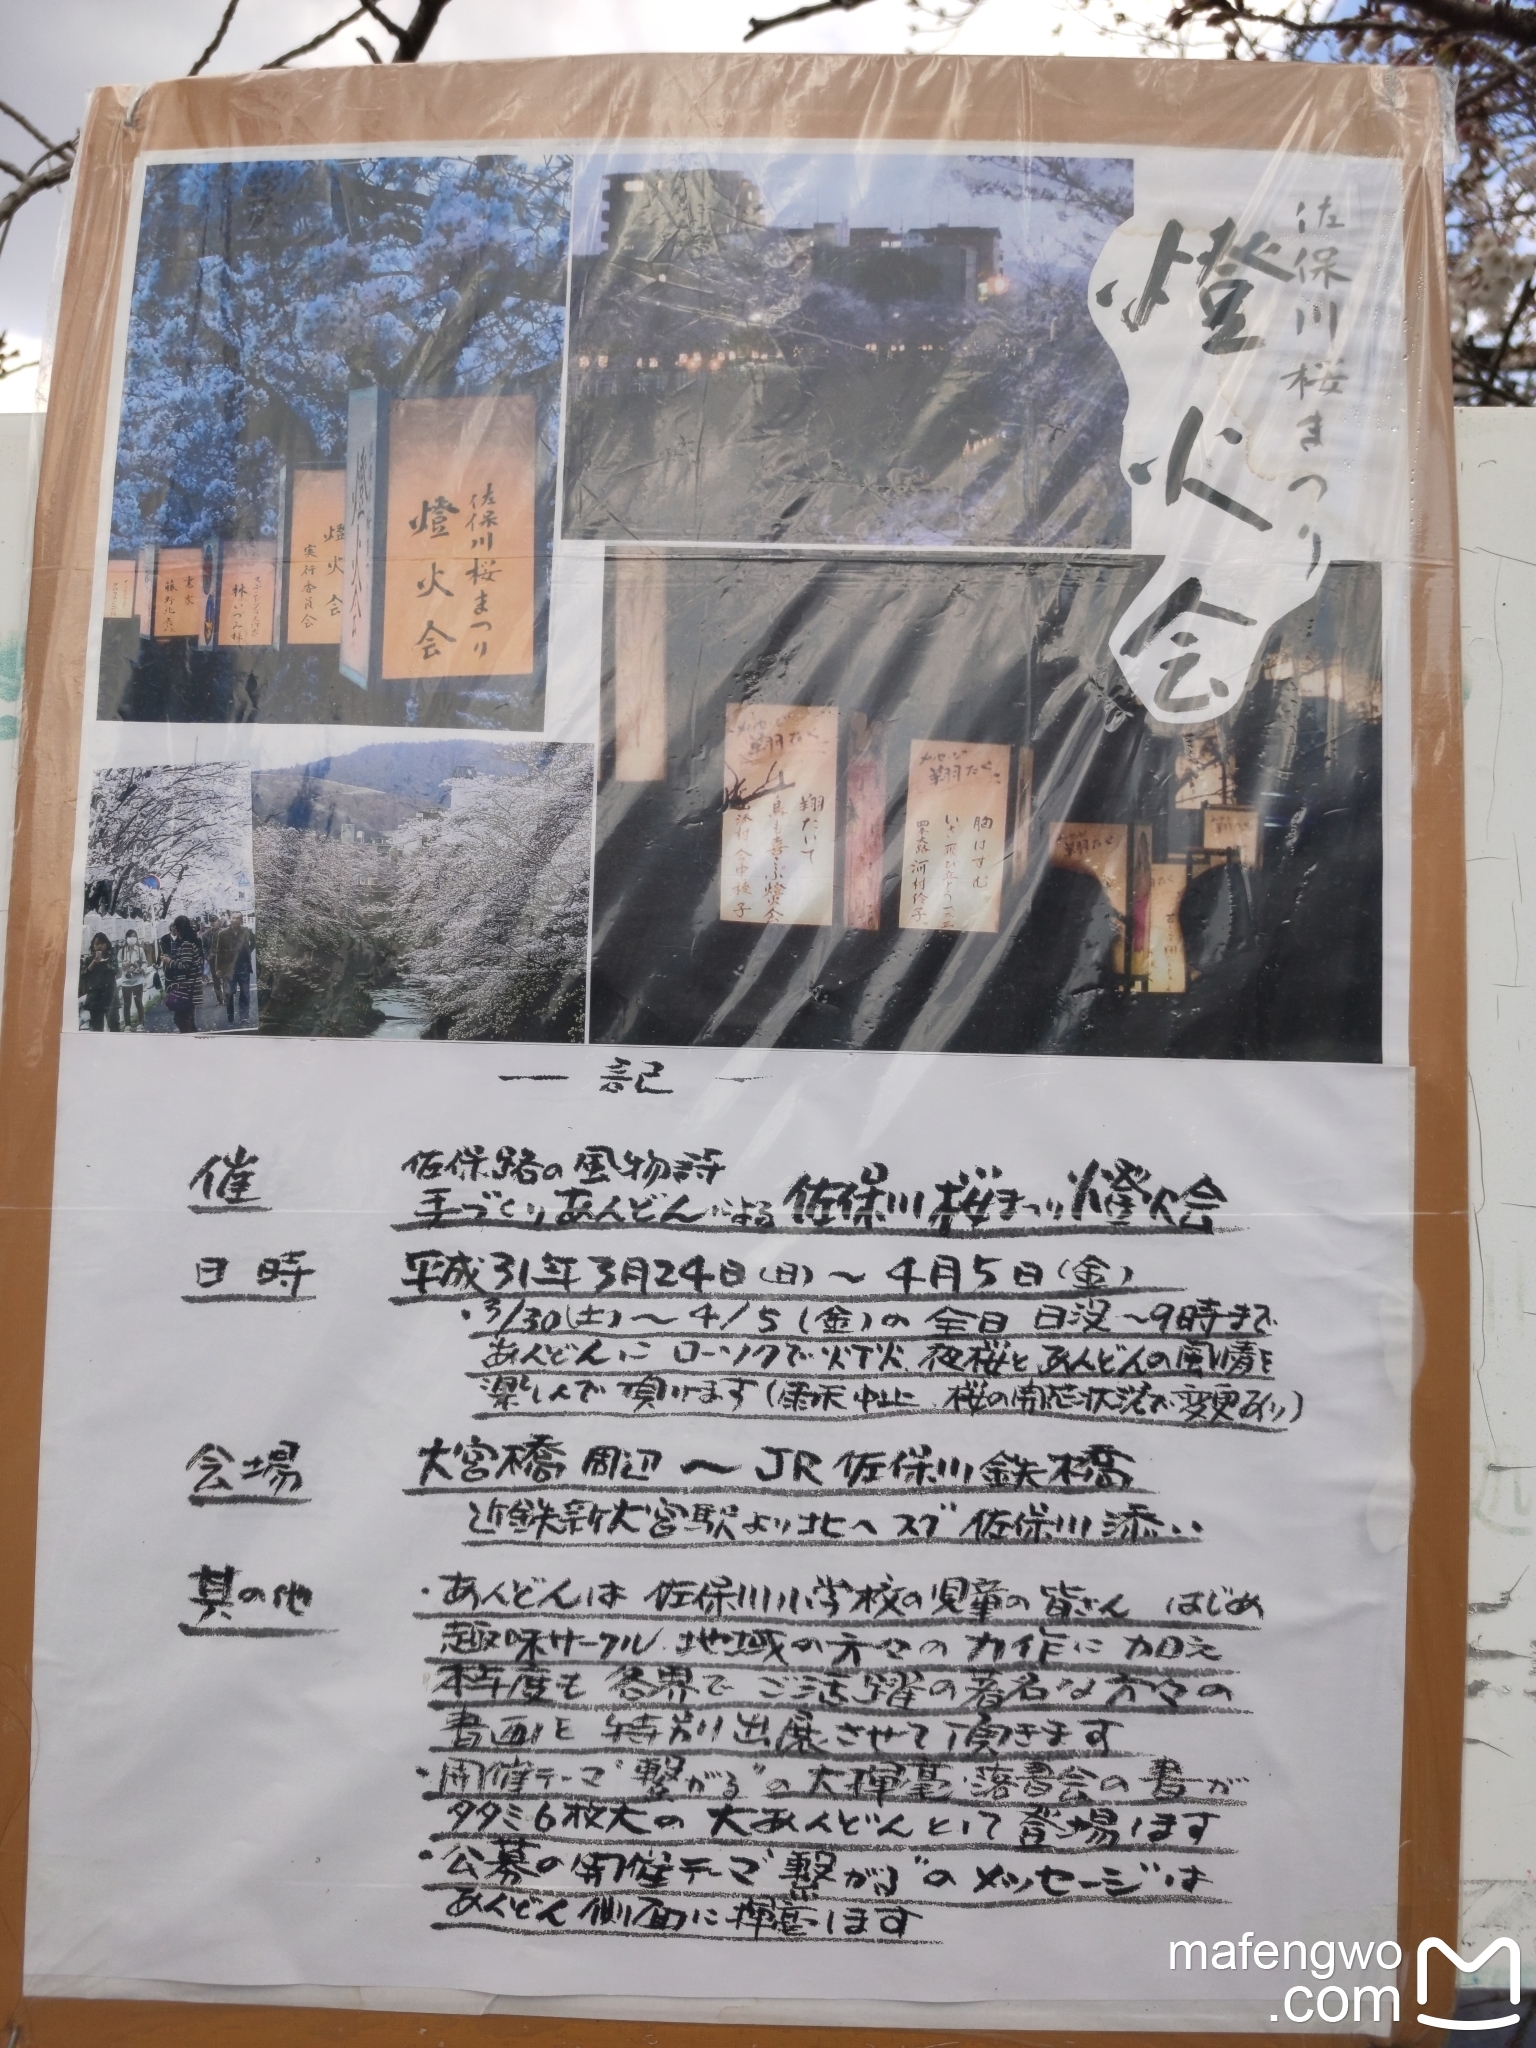 佐保川桜まつり
燈火会
佐保川桜まつり
燈火会
燈火会
実行委員会
翔たく
翔たいて
鳥も喜ぶ燈火会
メッセージ
翔たく
胸はずむ
一 記 一
催
佐保路の風物詩
手づくりあんどんによる 佐保川桜まつり燈火会
日時
平成31年3月24日(日)～4月5日(金)
・3/30(土)～4/5(金)の全日 日没～9時まで
あんどんにローソクで火丁火 夜桜とあんどんの風情を
楽しんで頂けます(雨天中止 桜の開花状況で変更あり)
会場
大宮橋周辺～JR佐保川鉄橋
近鉄新大宮駅より北へスグ佐保川添い
其の他
・あんどんは 佐保川小学校の児童の皆さん はじめ
趣味サークル 地域の方々の力作に加え
本年度も各界でご活躍の著名な方々の
書画を特別出展させて頂きます
・開催テーマ"繋がる"の大揮毫 落書会の書が
タタミ6枚大の大あんどんとして登場します
・公募の開催テーマ"繋がる"のメッセージは
あんどん側面に揮毫します
mafengwo
.com